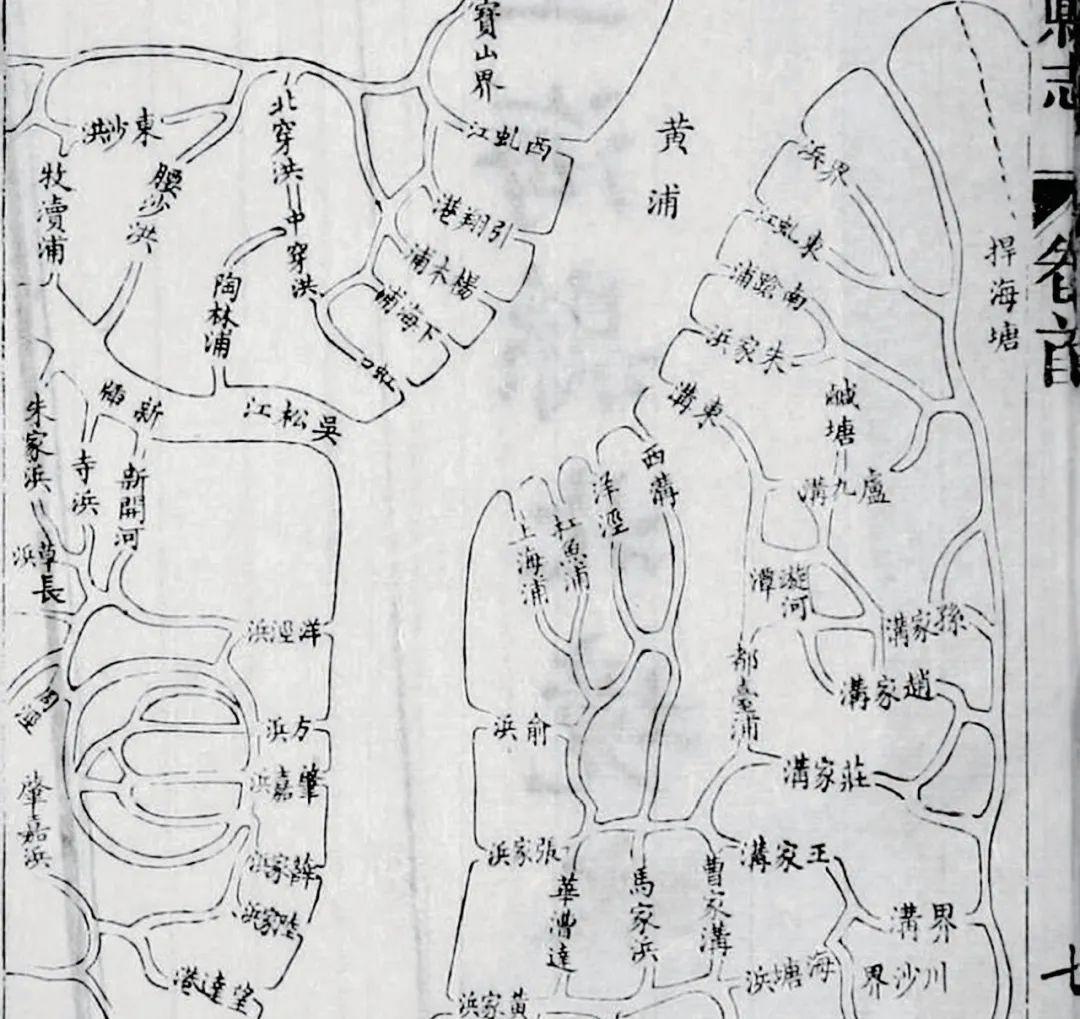 縣志
卷首
七
捍海塘
寶山界
黄浦
西虬江
引翔港
楊木浦
下海浦
虹口
北穿洪
中穿洪
東沙洪
腰沙洪
牧瀆浦
陶林浦
吳松江
新
朱家浜
寺浜
新開河
長
洋涇浜
方浜
肇嘉浜
肇嘉浜
薛家浜
陸家浜
望達港
界浜
東虬江
南蹌浦
朱家浜
東溝
鹹塘
盧九溝
西溝
洋涇
上海浦
漩河
潭
孫家溝
趙家溝
都臺浦
莊家溝
俞浜
張家浜
華漕達
馬家浜
曹家溝
王家溝
界溝
川沙界
海塘浜
黃家浜